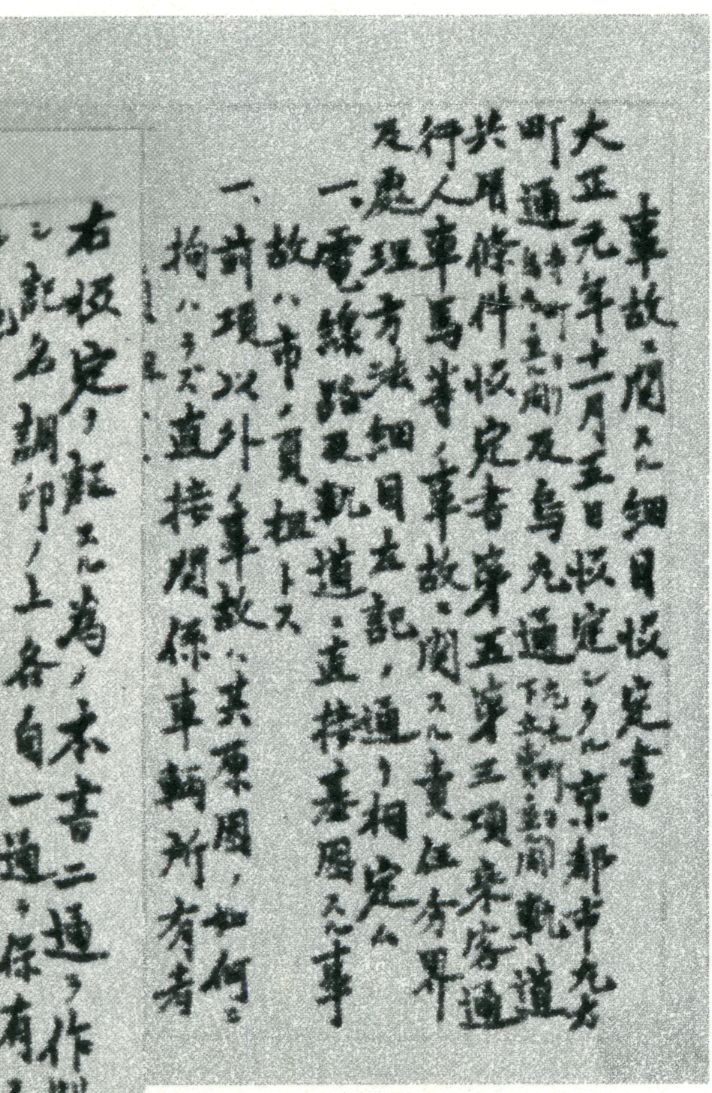 事故ニ関スル細目協定書
大正元年十二月五日協定シタル京都市丸太
町通 間及烏丸通 間軌道
共用條件協定書第五第三項乗客通
行人車馬等ノ事故ニ関スル責任分界
及處理方法細目左記ノ通リ相定ム
一、電線路及軌道ニ直接基因スル事
故ハ市ノ負担トス
一、前項以外ノ事故ハ其原因ノ如何ニ
拘ハラズ直接関係車輌所有者
右協定ヲ証スル為ノ本書二通ヲ作
シ記名調印ノ上各自一通ヲ保有